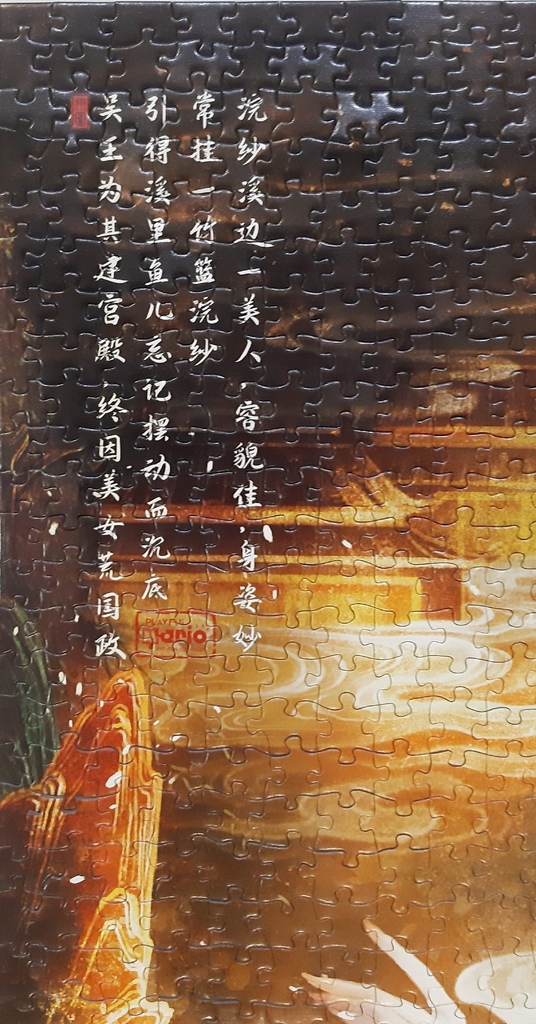 浣纱溪边一美人，容貌佳，身姿妙
常挂一竹篮浣纱
引得溪里鱼儿忘记摆动而沉底
吴王为其建宫殿，终因美女荒国政
PLAYFUL
Jario